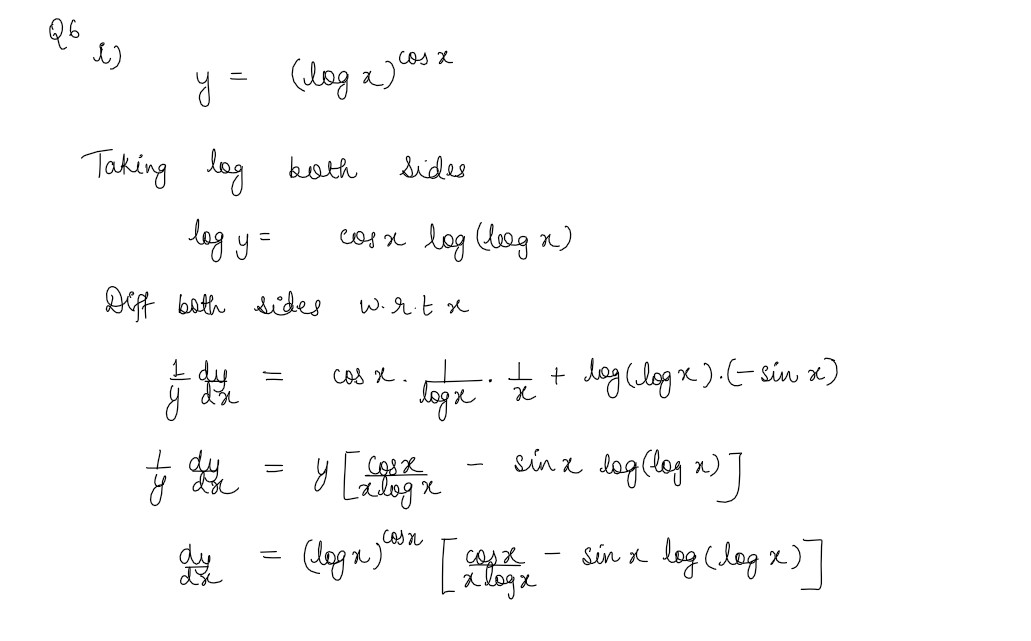 Q6
i) y = (log x)^cos x
Taking log both sides
log y = cos x log (log x)
Diff both sides w.r.t x
1/y dy/dx = cos x . 1/log x . 1/x + log(log x).(-sin x)
1/y dy/dx = y [cos x/x log x - sin x log(log x)]
dy/dx = (log x)^cos x [cos x/x log x - sin x log(log x)]